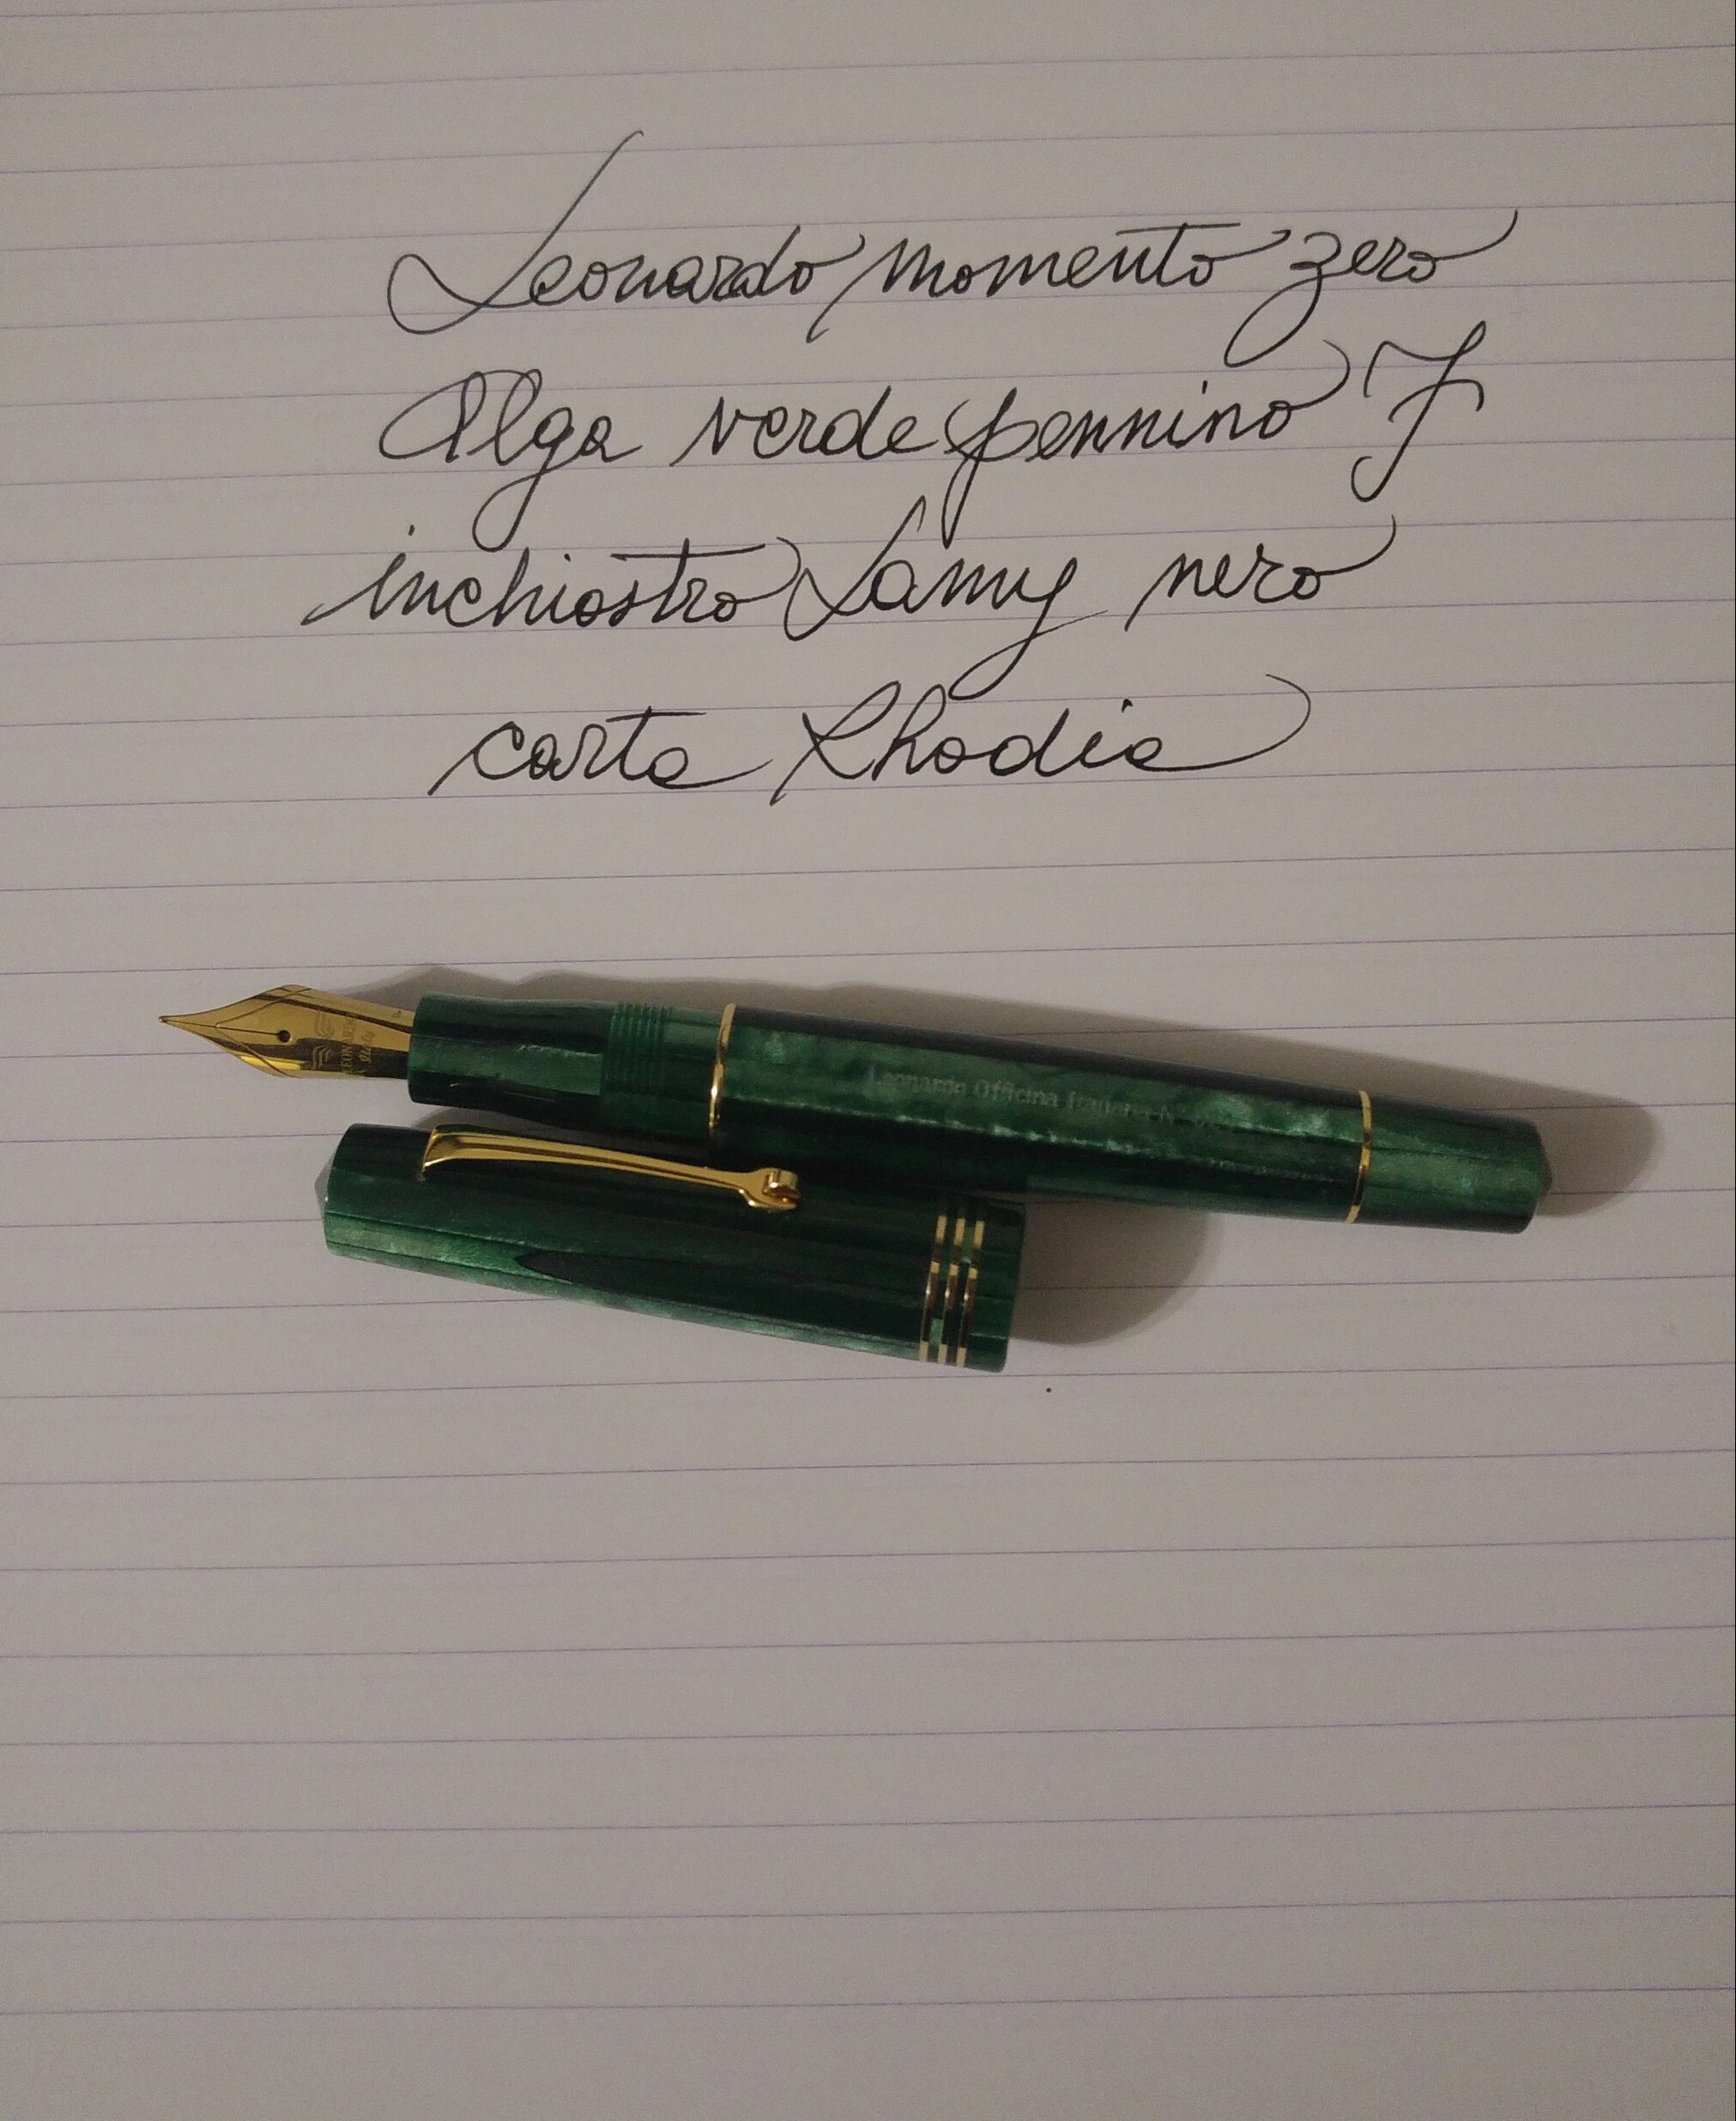 Leonardo momento zero
Alga verde pennino F
inchiostro Lamy nero
carta Rhodia
Leonardo Officina Italiana N°